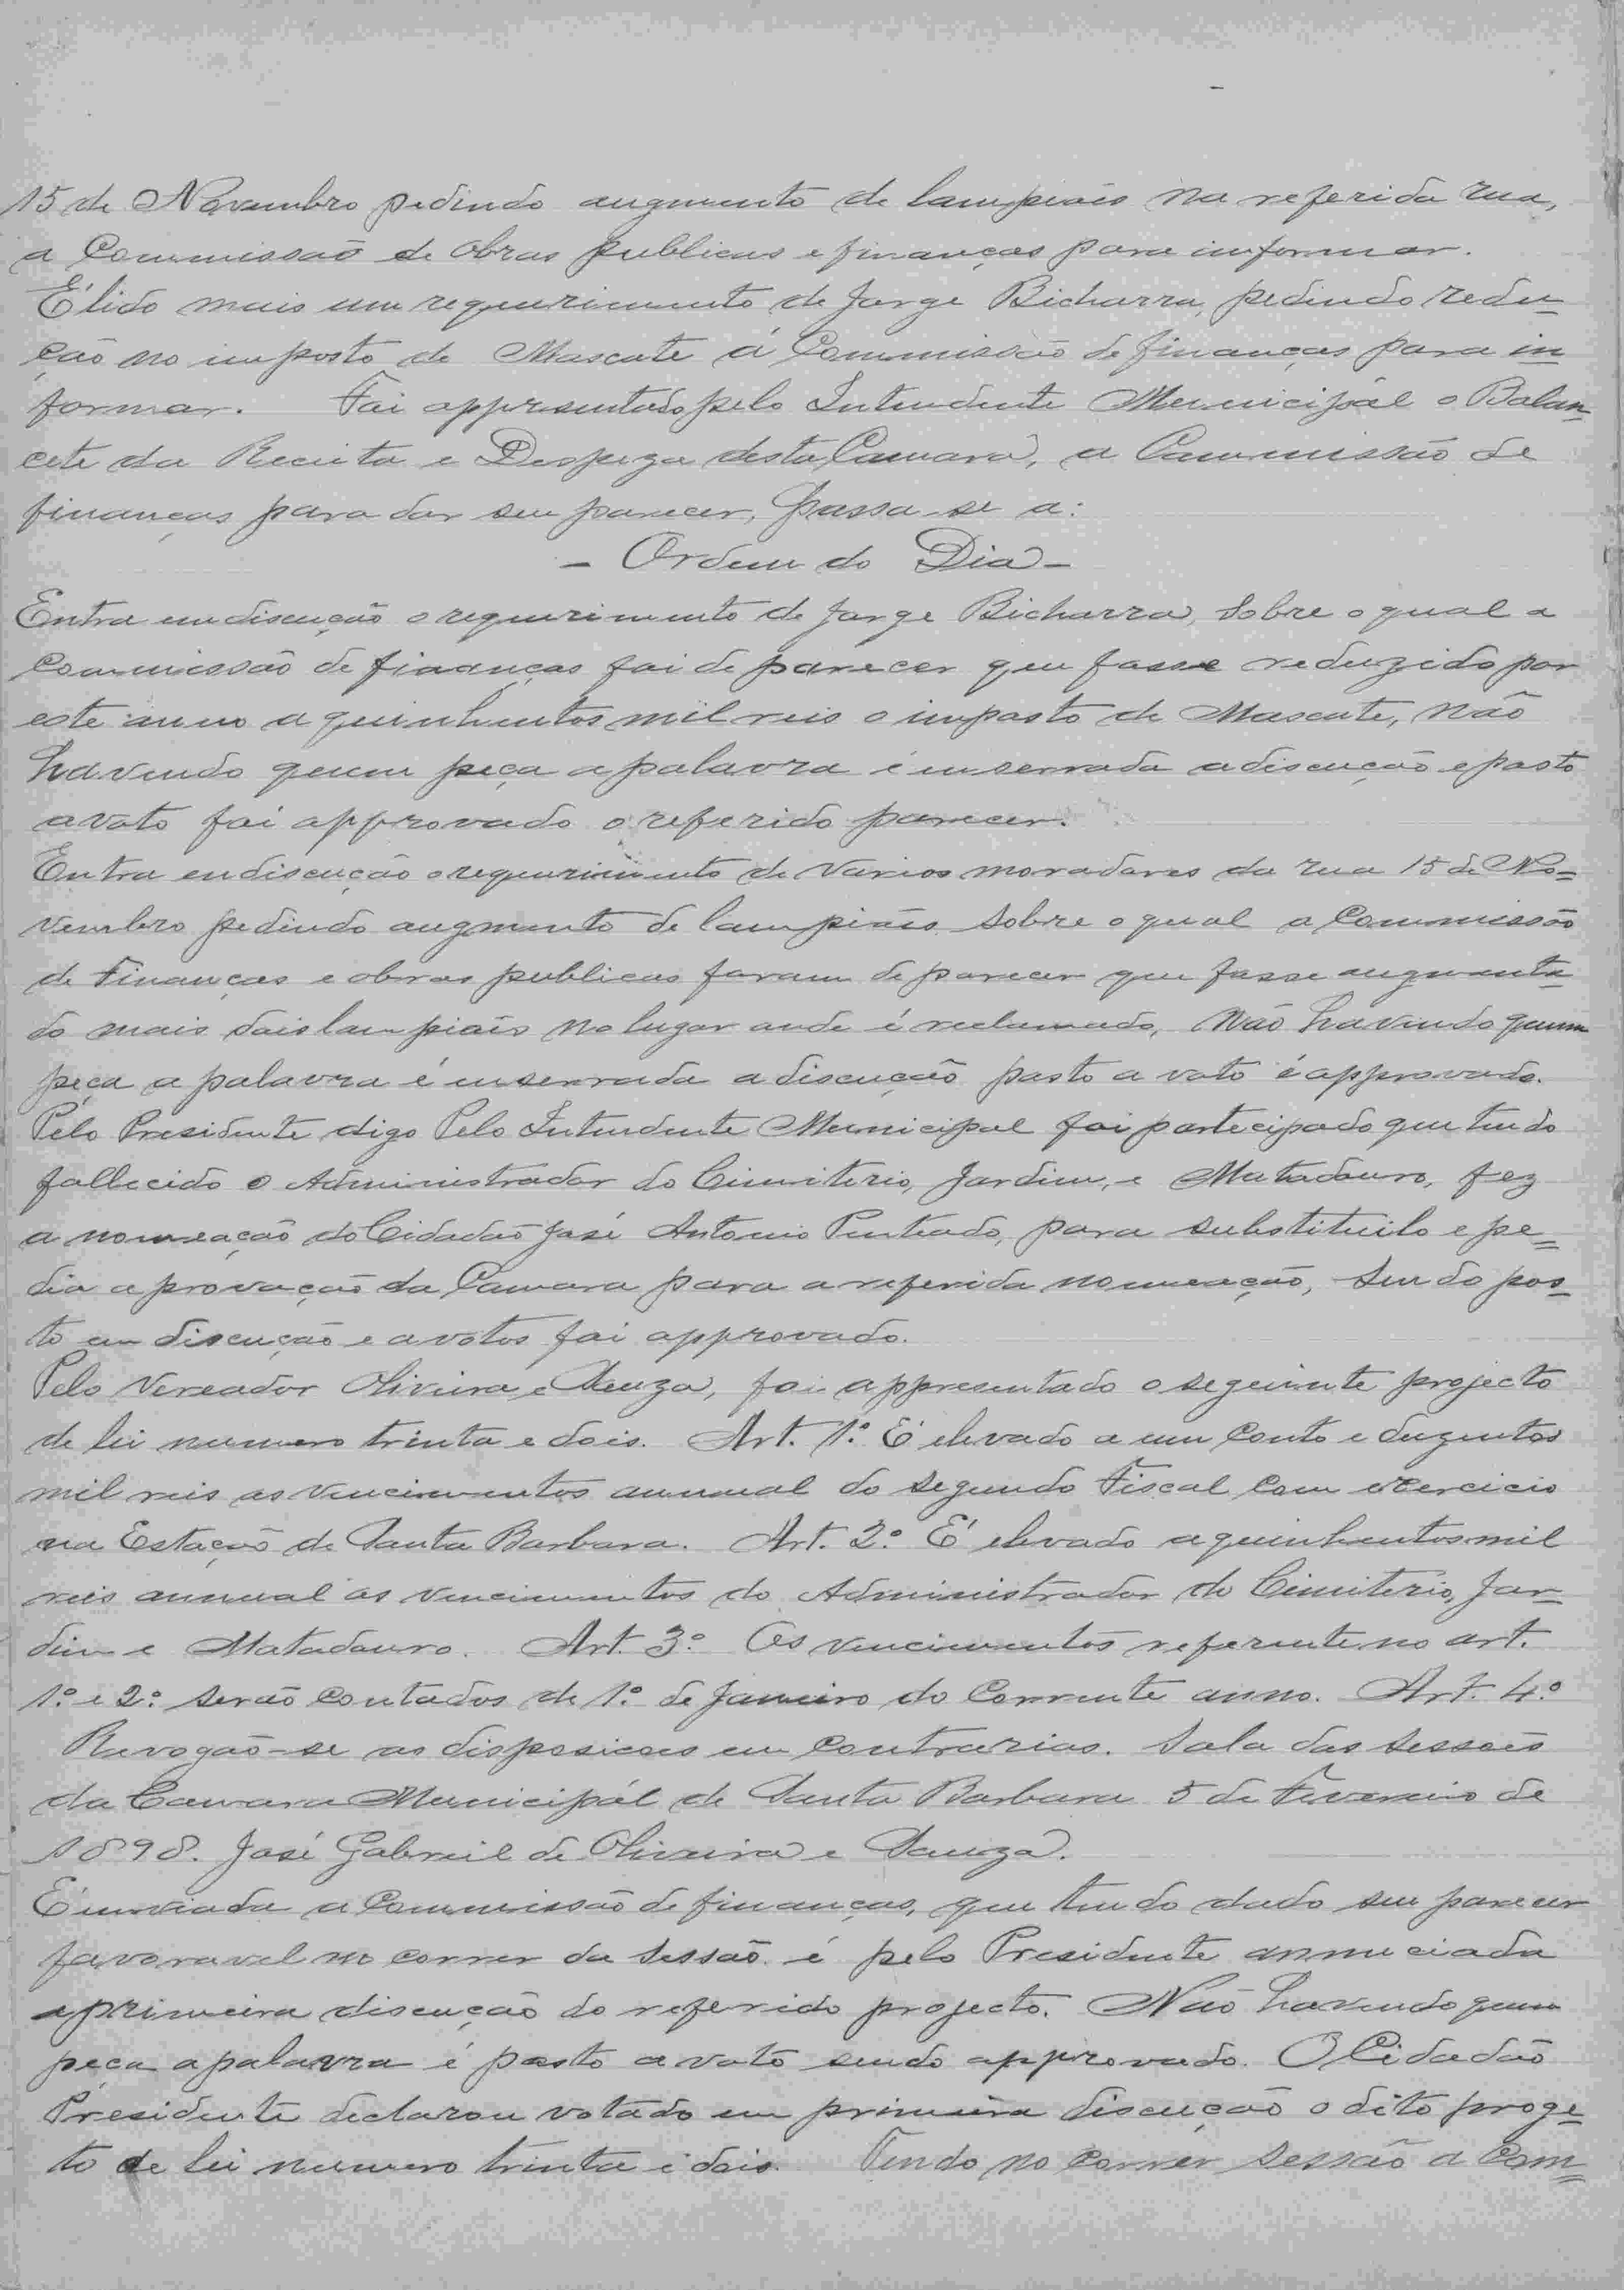 15 de Novembro pedindo augmento de lampiaõs na referida rua,
a Commissaõ de obras publicas e finanças para informar.
É lido mais um requerimento de Jorge Bicharra, pedindo redu-
ção no imposto de Mascate á Commissão de finanças para in
formar. Foi appresentado pelo Intendente Municipál o Balan-
cete da Receita e Despeza desta Camara, a Commissão de
finanças para dar seu parecer, passa-se a:
- Ordem do Dia -
Entra em discução o requerimento de Jorge Bicharra, sobre o qual a
Commissão de finanças foi de parecer que fosse reduzido por
este anno a quinhentos mil reis o imposto de Mascate, não
havendo quem peça a palavra é enserrada a discução e posto
a voto foi approvado o referido parecer.
Entra en discução o requerimento de varios moradores da rua 15 de No=
vembro pedindo augmento de lampiaõs sobre o qual a Commissão
de Finanças e obras publicas foram de parecer que fosse augmenta-
do mais dois lampiaõs no lugar onde é reclamado, não havendo quem
peça a palavra é enserrada a discução posto a voto é approvado.
Pelo Presidente digo Pelo Intendente Municipal foi partecipado que tendo
fallecido o Administrador do Cimiterio, Jardim, e Matadouro, fez
a nomeação do Cidadaõ José Antonio Penteado, para substituilo e pe=
dia a provação da Camara para a referida nomeação, sendo pos-
to em discução e a votos foi approvado.
Pelo Vereador Oliveira e Souza, foi appresentado o seguinte projecto
de lei numero trinta e dois. Art. 1.º É elevado a um conto e duzentos
mil reis os vencimentos annual do segundo Fiscal com exercicio
na Estação de Santa Barbara. Art. 2.º É elevado a quinhentos mil
reis annual os vencimentos do Administrador do Cimiterio, Jar-
dim e Matadouro. Art. 3.º Os vencimentos referente no art.
1.º e 2.º serão contados de 1.º de Janeiro do corrente anno. Art. 4.º
Revogaõ-se as disposicoes em contrarias. Sala das sessoẽs
da Camara Municipál de Santa Barbara 5 de Fevereiro de
1898. José Gabriel de Oliveira e Souza.
É enviada a Commissão de finanças, que tendo dado seu parecer
favoravel no correr da sessão é pelo Presidente annuciada
a primeira discução do referido projecto. Não havendo quem
peça a palavra é posto a voto sendo approvado. O Cidadão
Presidente declarou votado em primeira discução o dito proge-
to de lei numero trinta e dois. Tendo no correr sessão a Com=